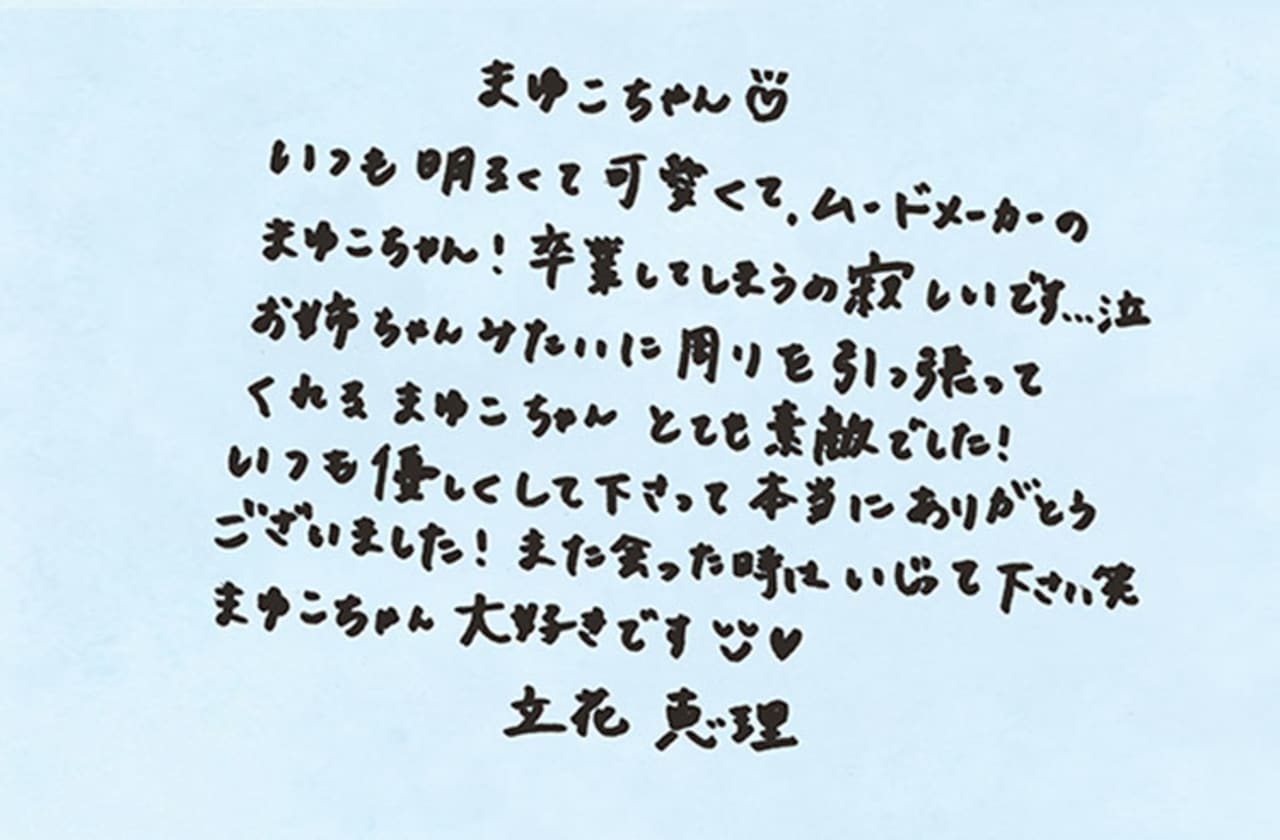 まゆこちゃん
いつも明るくて可愛くて、ムードメーカーの
まゆこちゃん!卒業してしまうの寂しいです…泣
お姉ちゃんみたいに周りを引っ張って
くれるまゆこちゃん とても素敵でした!
いつも優しくして下さって本当にありがとう
ございました!また会った時はいじって下さい笑
まゆこちゃん 大好きです♥
立花 恵理